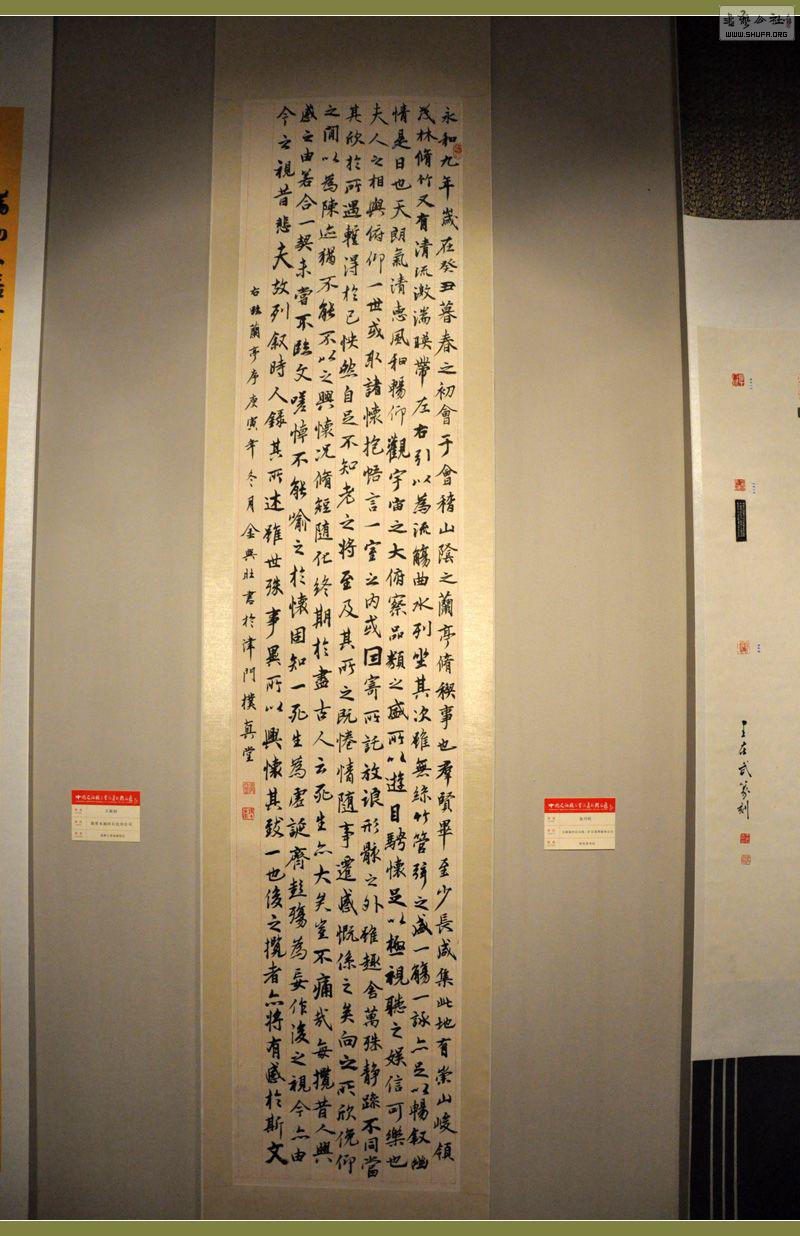 永和九年歲在癸丑暮春之初會于會稽山陰之蘭亭脩稧事也羣賢畢至少長咸集此地有崇山峻領
茂林脩竹又有清流激湍暎帶左右引以為流觴曲水列坐其次雖無絲竹管弦之盛一觴一詠亦足以暢叙幽
情是日也天朗氣清惠風和暢仰觀宇宙之大俯察品類之盛所以遊目騁懷足以極視聽之娛信可樂也
夫人之相與俯仰一世或取諸懷抱悟言一室之内或因寄所託放浪形骸之外雖趣舍萬殊静躁不同當
其欣於所遇暫得於己怏然自足不知老之將至及其所之既惓情隨事遷感慨係之矣向之所欣俛仰
之閒以為陳迹猶不能不以之興懷况脩短隨化終期於盡古人云死生亦大矣豈不痛哉每攬昔人興
感之由若合一契未嘗不臨文嗟悼不能喻之於懷固知一死生為虛誕齊彭殤為妄作後之視今亦由
今之視昔悲夫故列叙時人錄其所述雖世殊事異所以興懷其致一也後之攬者亦將有感於斯文
右臨蘭亭序庚寅年冬月金興旺書於津門樸真堂
書藝公社
WWW.SHUFA.ORG